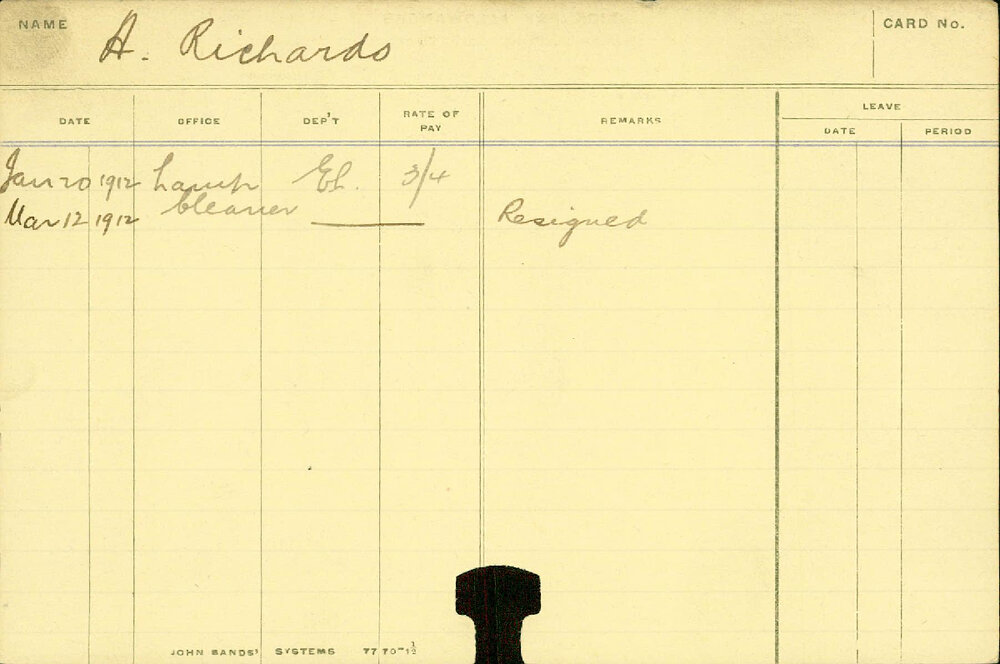 NAME A. Richards CARD No.
DATE OFFICE DEP'T RATE OF PAY REMARKS LEAVE
DATE PERIOD
Jan 20 1912 Lamp El. 3/4
Cleaner
Mar 12 1912 Resigned
JOHN SANDS' SYSTEMS 7770-1/2